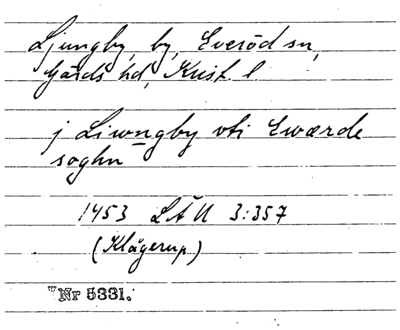 Ljungby, by, Everöd sn,
Gärds hd, Krist. l
j Liwngby vti Ewærde
soghn
1453 LÄU 3:357
(Klågerup)
Nr 5331.